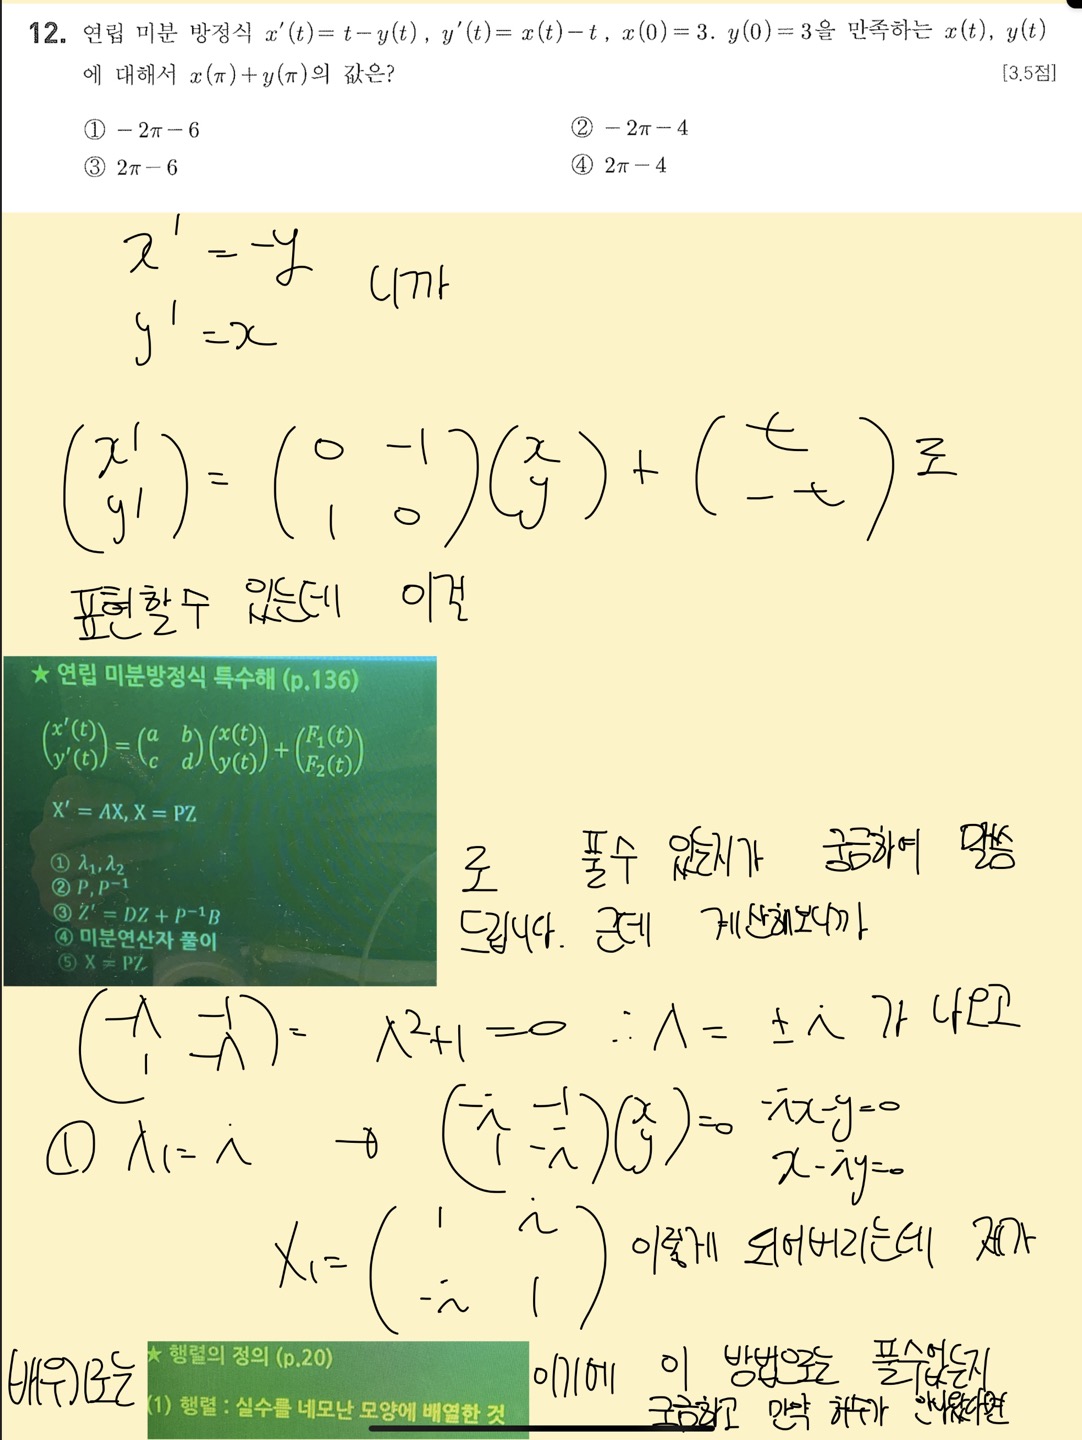 12. 연립 미분 방정식 x′(t)= t−y(t), y′(t)= x(t)−t, x(0)=3. y(0)=3을 만족하는 x(t), y(t)
에 대해서 x(π)+y(π)의 값은? [3.5점]
① −2π−6 ② −2π−4
③ 2π−6 ④ 2π−4
x′ = −y
y′ = x 니까
(x′ y′) = (0 −1 1 0)(x y) + (t −t) 로
표현할수 있는데 이걸
★ 연립 미분방정식 특수해 (p.136)
(x′(t) y′(t)) = (a b c d)(x(t) y(t)) + (F₁(t) F₂(t))
X′ = AX, X = PZ
① λ₁, λ₂
② P, P⁻¹
③ Z′ = DZ + P⁻¹B
④ 미분연산자 풀이
⑤ X = PZ
로 풀수 있는지가 궁금하여 말씀
드립니다. 근데 계산해보니까
(−λ −1 1 −λ) = λ²+1=0 ∴ λ = ±i 가 나오고
① λ₁= i → (−i −1 1 −i)(x y)=0 −ix−y=0 x−iy=0
X₁= (1 i −i 1) 이렇게 되어버리는데 제가
배우기로는 ★ 행렬의 정의 (p.20)
(1) 행렬 : 실수를 네모난 모양에 배열한 것
이기에 이 방법으로는 풀수없는지
궁금하고 만약 허수가 안나왔다면